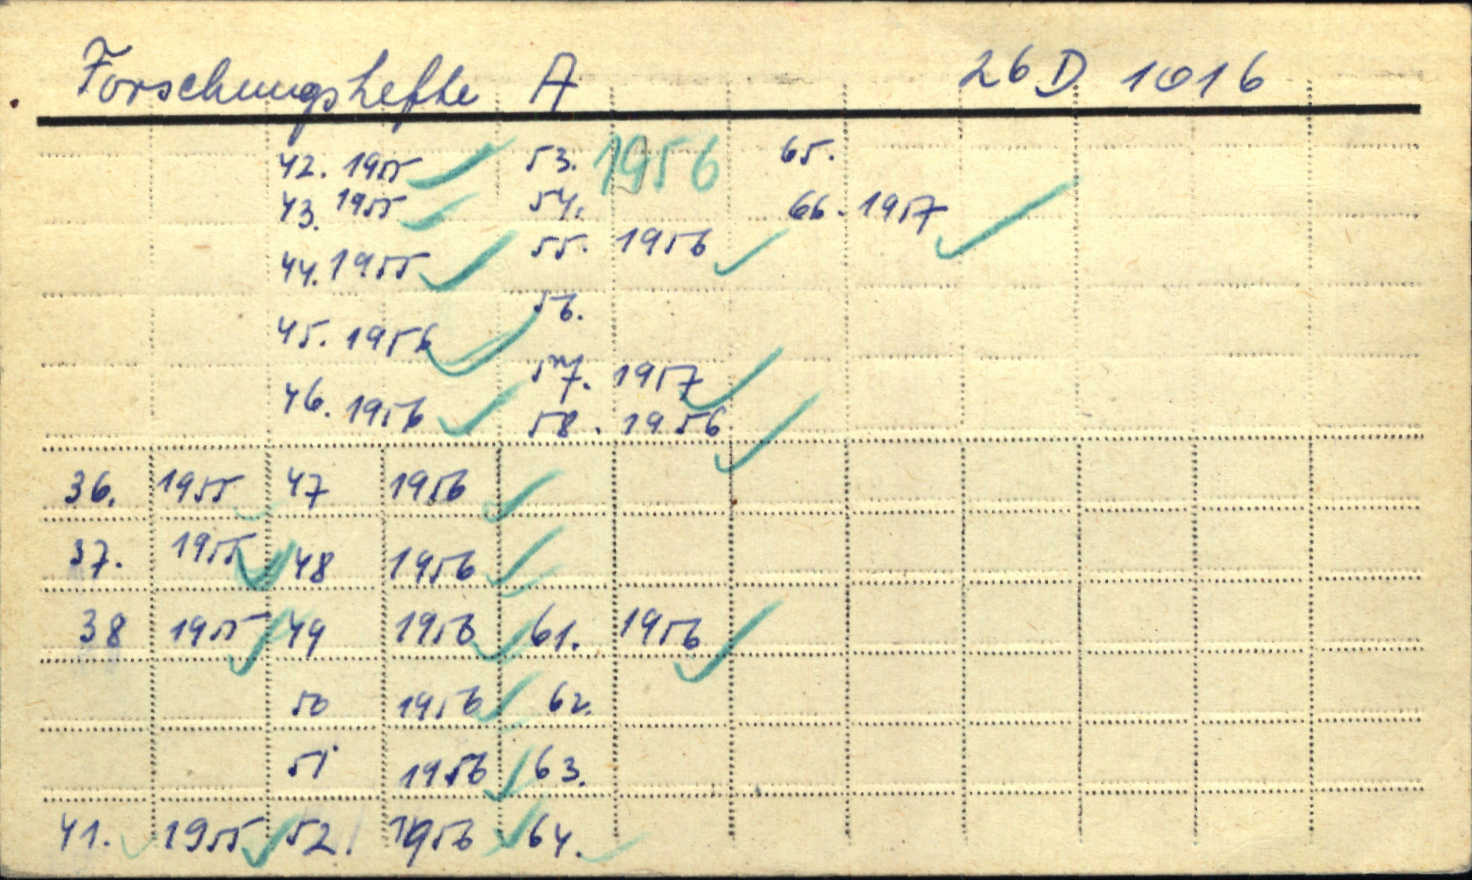 Forschungshefte A 26 D 1016
42. 1955 53. 1956 65.
43. 1955 54. 66. 1957
44. 1955 55. 1956
56.
45. 1956
57. 1957
46. 1956 58. 1956
36. 1955 47 1956
37. 1955 48 1956
38 1955 49 1956 61. 1956
50 1956 62.
51 1956 63.
41. 1955 52. 1956 64.